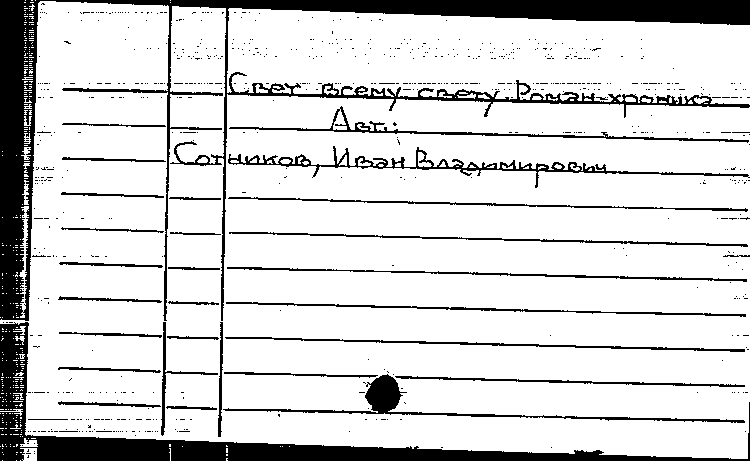 Свет всему свету Роман-хроника
Авт.:
Сотников, Иван Владимирович